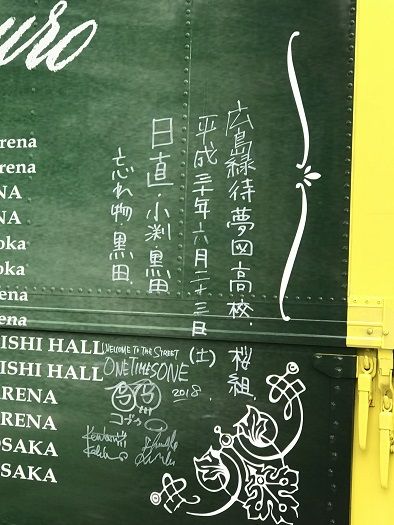 uro
広島緑待夢図高校 桜組
平成三十年六月二十三日(土)
日直・小渕・黒田
忘れ物・黒田
rena
rena
NA
NA
oka
oka
rena
rena
ISHI HALL
ISHI HALL
ARENA
ARENA
OSAKA
OSAKA
WELCOME TO THE STREET
ONE TIMES ONE
コブクロ
2018